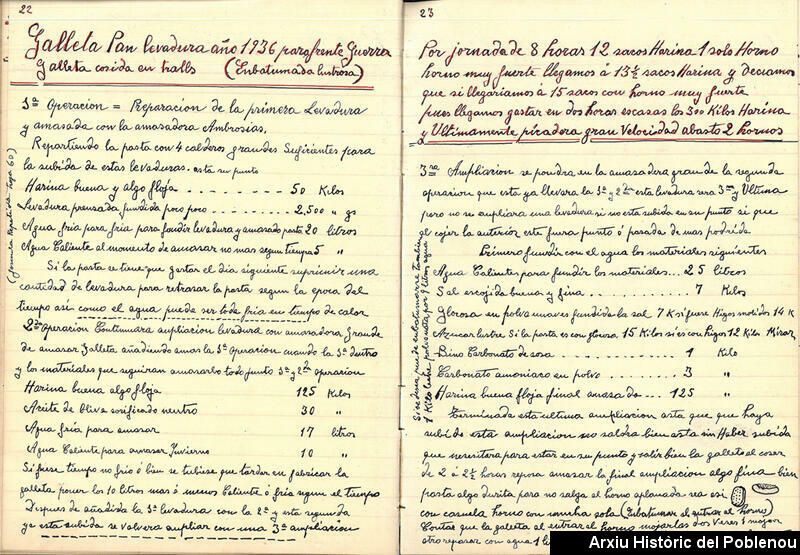 22
Galleta Pan levadura año 1936 para frente Guerra
Galleta cosida en tralls (Enbatumada lustrosa)
1ª Operacion = Reparacion de la primera Levadura
y amasada con la amasadora Ambrosias.
Repartiendo la pasta con 4 calderos grandes Sufisientes para
la subida de estas levaduras. esta su punto
Harina buena y algo floja 50 Kilos
Levadura prensada fundida poco poco 2,500 " gs
Agua fria para fria para fundir levadura y amasado parte 20 litros
Agua Caliente al momento de amasar no mas segun tiempo 5 "
Si la pasta se tiene que gastar el dia siguiente suprimir una
cantidad de levadura para retrasar la pasta segun la epoca del
tiempo asi como el agua puede ser toda fria en tiempo de calor
2ª Operacion Continuara ampliacion levadura con amasadora grande
de amasar Galleta añadiendo amas la 1ª Operacion cuando la 1ª dentro
y los materiales que seguiran amasarlo todo punto 1ª y 2ª operacion
Harina buena algo floja 125 Kilos
Aceite de Olive sorificado neutro 30 "
Agua fria para amasar 17 litros
Agua Caliente para amasar Invierno 10 "
Si fuese tiempo no frio ó bien se tubiese que tardar en fabricar la
galleta poner los 10 litros mas ó menos Caliente ó fria segun el tiempo
Despues de añadida la 1ª levadura con la 2ª y esta segunda
ya esta subida se volvera ampliar con una 3ª ampliacion
(formula repetida hoja 60)
23
Por jornada de 8 horas 12 sacos Harina 1 solo Horno
horno muy fuerte llegamos á 13½ sacos Harina y Deciamos
que si llegariamos á 15 sacos con horno muy fuerte
pues llegamos gastar en dos horas escasas los 300 Kilos Harina
y Ultimamente picadora gran velocidad abasto 2 hornos
3ra Ampliacion se pondra en la amasadora grande de la segunda
operacion que esta ya llevara la 1ª y 2ª esta levadura sera 3ra y Ultima
pero no se ampliara una levadura si no esta subida en su punto si que
al cojer la anterior este fuera punto ó pasada de mas podrida
Primero fundir con el agua los materiales siguientes
Agua Caliente para fundir los materiales 25 litros
Sal escojida buena y fina 7 Kilos
Glocosa en polvo unaves fundida la sal 7 K si fuere Higos molidos 14 K
Azucar lustre Si la pasta es con glocosa 15 Kilos si es con higos 12 Kilos
Bino Carbonato de sosa 1 Kilo
Carbonato amoniaco en polvo 3 "
Harina buena floja final amasado 125 "
Terminada esta ultima ampliacion asta que que haya
subido esta ampliacion no saldra bien asta sin Haber subida
que nesesitera para estar en su punto y salir bien la galleta al coser
de 2 á 2½ horas reposa amasar la final ampliacion algo fina bien
pasta algo durita para no salga el horno aplanada sea asi
con casuela horno con mucha sola (Enbatumar el entrar el horno)
Contar que la galleta al entrar el horno mojarlas dos veces 1 mejor
otro reposar con agua 1 l
Arxiu Històric del Poblenou